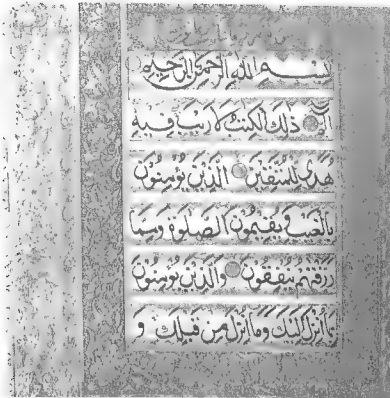 بسم الله الرحمن الرحيم
الم ذلك الكتب لا ريب فيه
هدى للمتقين الذين يؤمنون
بالغيب ويقيمون الصلوة ومما
رزقنهم ينفقون والذين يؤمنون
بما انزل اليك وما انزل من قبلك و